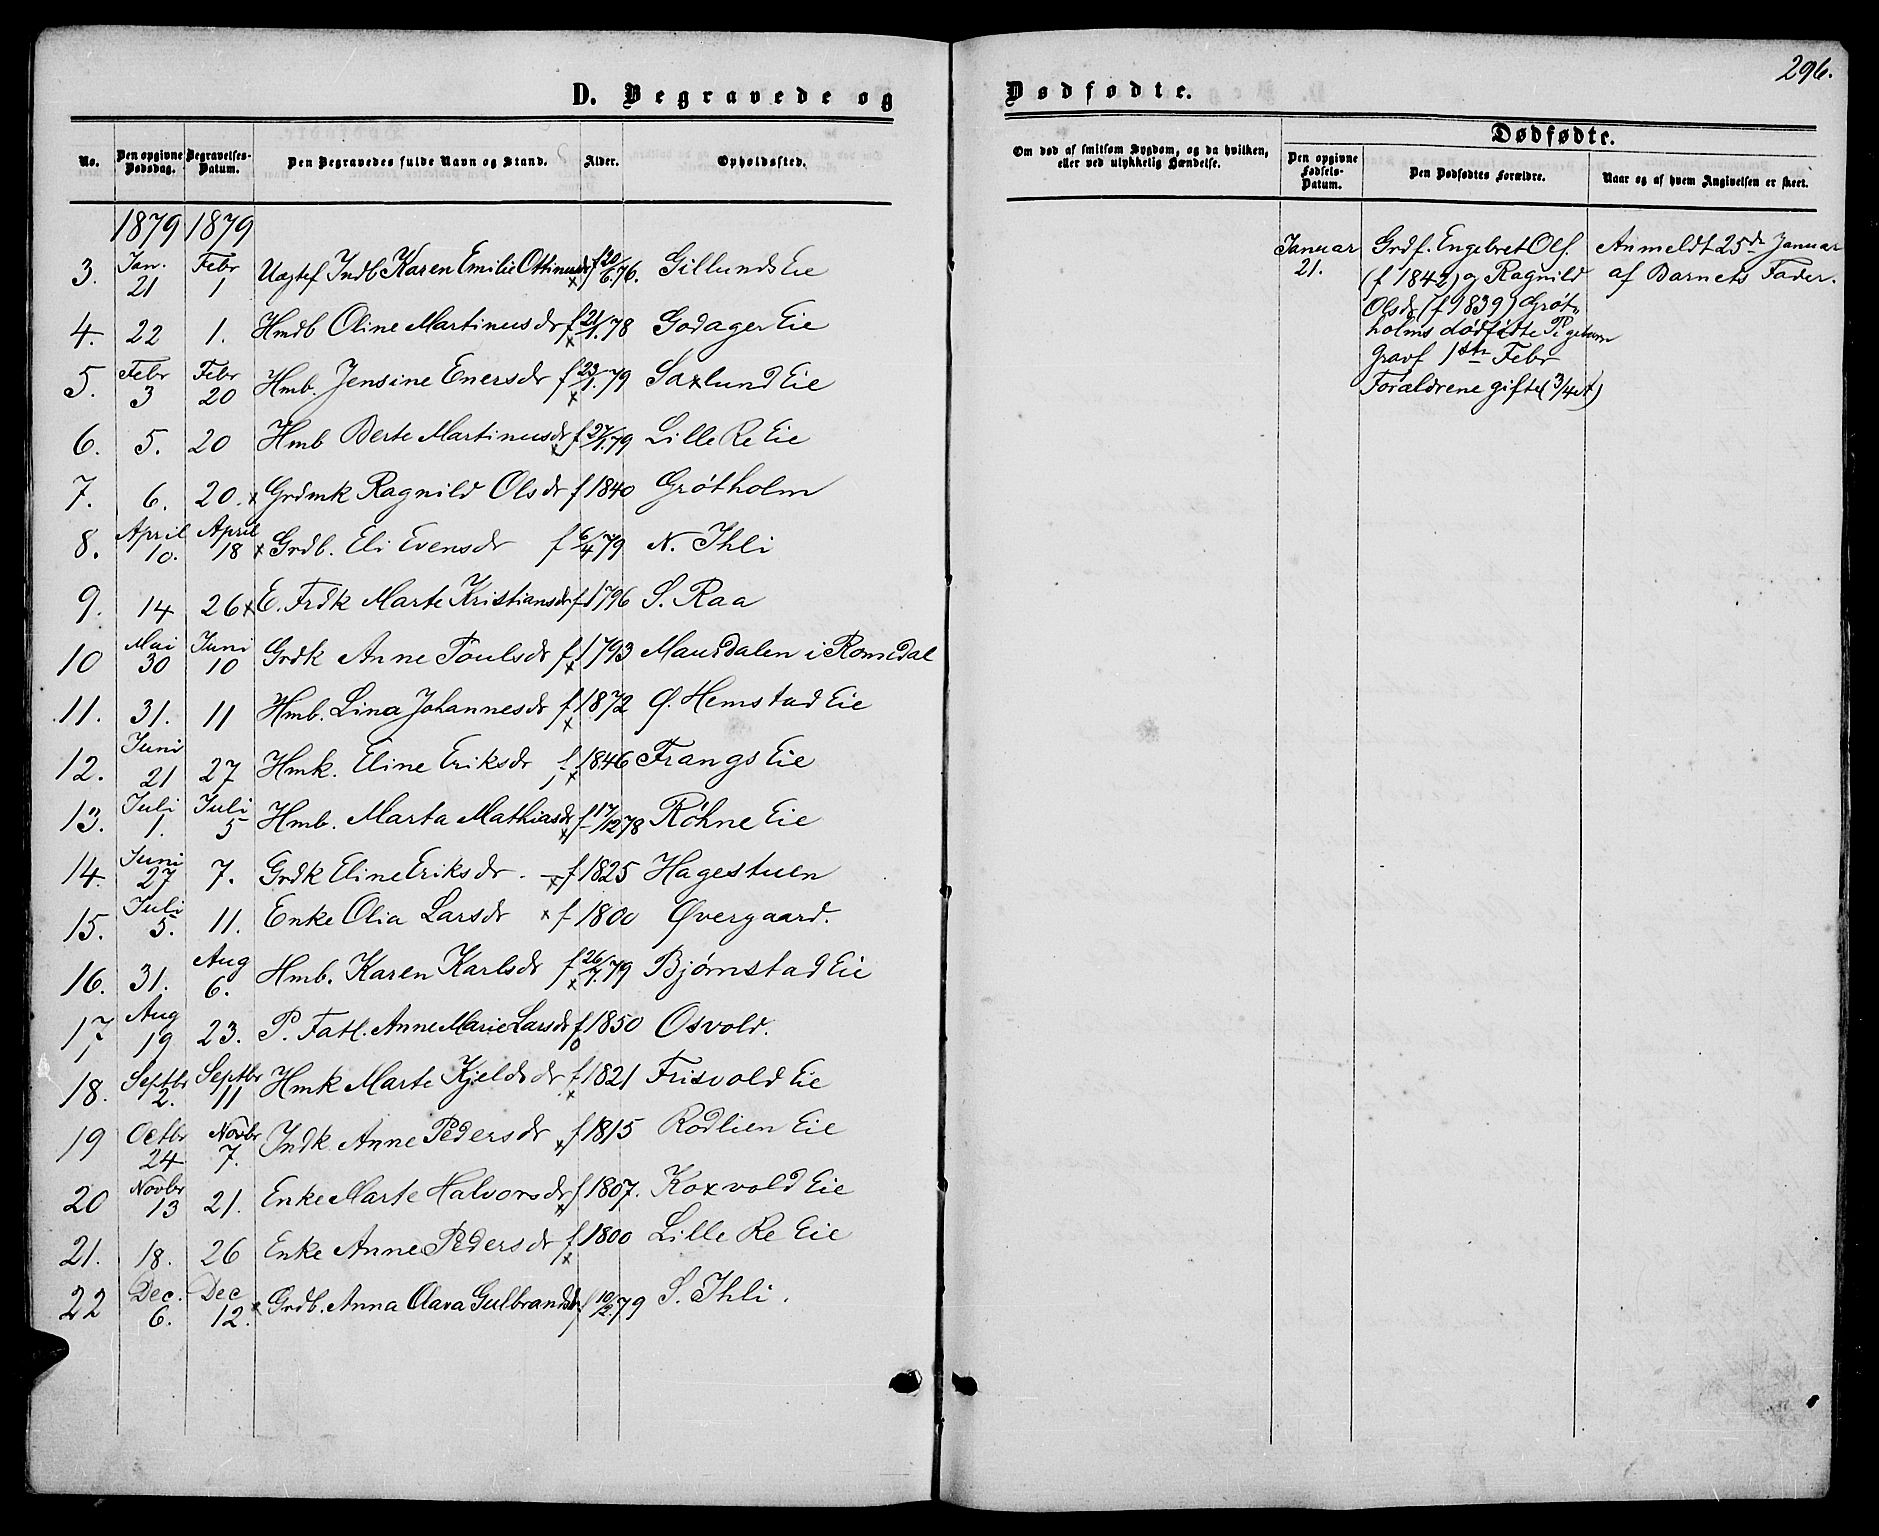 D. Begravede og
No. Den opgivne Dødsdag. Begravelses-Datum. Den Begravedes fulde Navn og Stand. Alder. Opholdssted.
1879 1879
3. Jan. 21 Febr 1 Uægtef Indb Karen Emilie Ottinusdr f 20/6.76. Gillunds Eie
4. 22 1. Hmdb Oline Martinusdr f 21/1.78 Godager Eie
5. Febr 3 Febr 20 Hmb. Jensine Enersdr f 23/1.79 Saxlund Eie
6. 5. 20 Hmb Berte Martinusdr f 27/1.79 Lille Re Eie
7. 6. 20. x Grdmk Ragnild Olsdr f 1840 Grøtholm
8. April 10. April 18 x Grdb. Eli Evensdr f 6/4 79 N. Ihli
9. 14 26 x E. Frdk Marte Kristiansdr f 1796 S. Raa
10 Mai 30 Juni 10 Grdk Anne Poulsdr f 1793 Maurdalen i Romedal
11. 31. 11 Hmb. Lina Johannesdr f 1872 Ø. Hemstad Eie
12. Juni 21 27 Hmk. Eline Eriksdr f 1846 Frangs Eie
13. Juli 1. Juli 5 Hmb. Marta Mathiasdr f 17/12 78 Røhne Eie
14. Juni 27 7. Grdk Eline Eriksdr. x f 1825 Hagestuen
15. Juli 5. 11. Enke Olia Larsdr x f 1800 Øvergaard.
16. 31. Aug 6. Hmb. Karen Karlsdr f 26/7.79 Bjørnstad Eie
17, Aug 19 23. P. Fatl. Anne Marie Larsdr f 1850 Osvold.
18. Septbr 2. Septbr 11 Hmk Marte Kjeldsdr f 1821 Frisvold Eie
19 Octbr 24 Novbr 7. Indk Anne Pedersdr x f 1815 Rødlien Eie
20 Novbr 13 21. Enke Marte Halvorsdr f 1807. Koxvold Eie
21. 18. 26 Enke Anne Pedersdr f 1800 Lille Re Eie
22 Dec. 6. Dec 12. x Grdb. Anna Olava Gulbrandsdr f 10/2.79 S. Ihli.
296.
Dødfødte.
Dødfødte.
Om død af smitsom Sygdom, og da hvilken, eller ved ulykkelig Hændelse. Den opgivne Fødsels-Datum. Den Dødfødtes Forældre. Naar og af hvem Angivelsen er skeet.
Januar Grdf. Engebret Ols. Anmeldt 25de Januar
21. (f 1842) og Ragnild af Barnets Fader.
Olsdr (f 1839) Grøt-
holms dødfødte Pigebarn
Gravf 1ste Febr
Forældrene gifte (3/4 et)